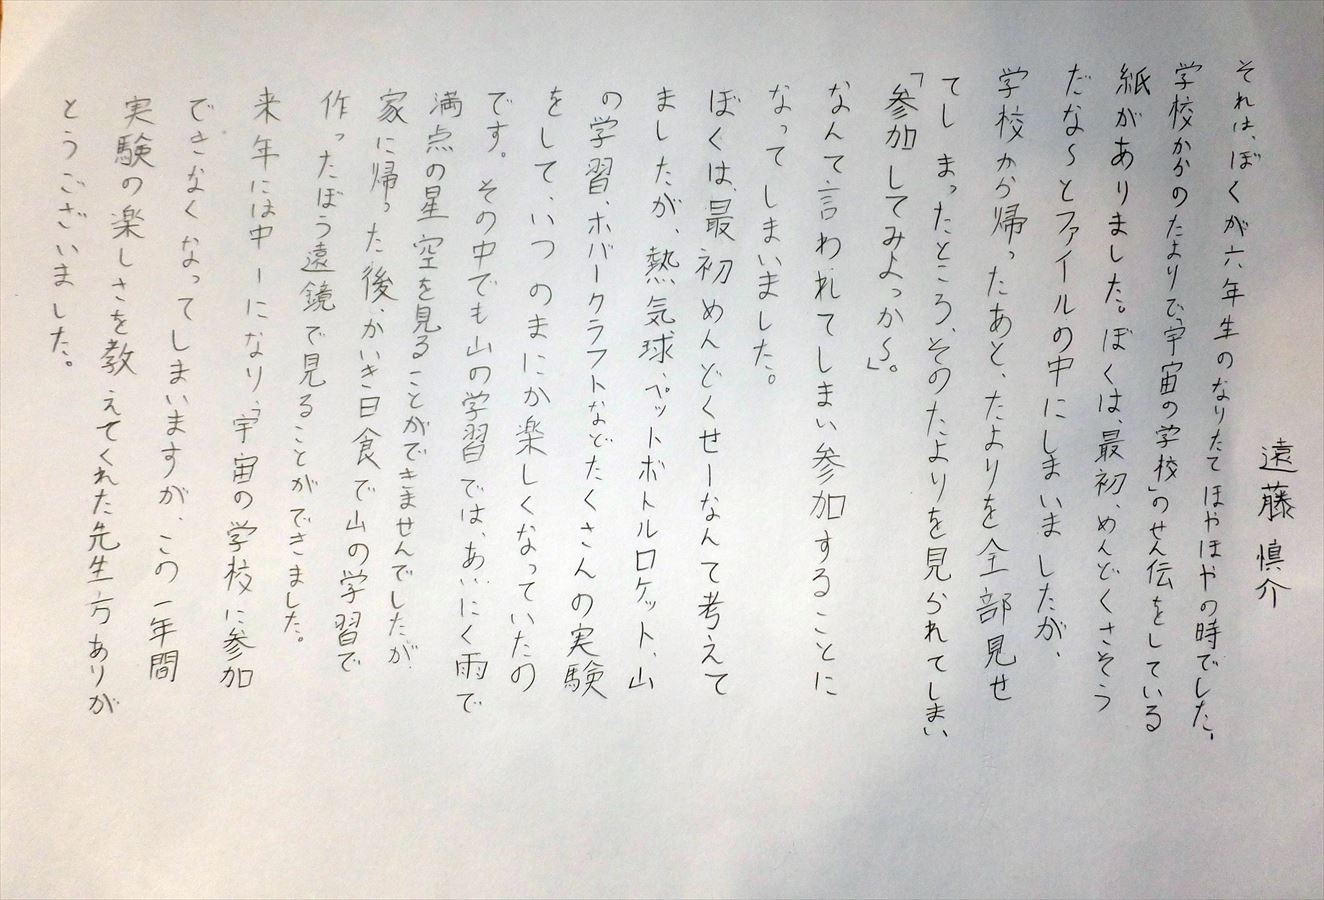 遠藤慎介
それは、ぼくが六年生のなりたてほやほやの時でした。
学校からのたよりで、「宇宙の学校」のせん伝をしている
紙がありました。ぼくは、最初、めんどくさそう
だな～とファイルの中にしまいましたが、
学校から帰ったあと、たよりを全部見せ
てしまったところ、そのたよりを見られてしまい
「参加してみよっか～」。
なんて言われてしまい参加することに
なってしまいました。
ぼくは、最初めんどくせーなんて考えて
ましたが、熱気球、ペットボトルロケット、山
の学習、ホバークラフトなどたくさんの実験
をして、いつのまにか楽しくなっていたの
です。その中でも山の学習では、あいにく雨で
満点の星空を見ることができませんでしたが、
家に帰った後、かいき日食で山の学習で
作ったぼう遠鏡で見ることができました。
来年には中一になり、「宇宙の学校に参加
できなくなってしまいますが、この一年間
実験の楽しさを教えてくれた先生方ありが
とうございました。